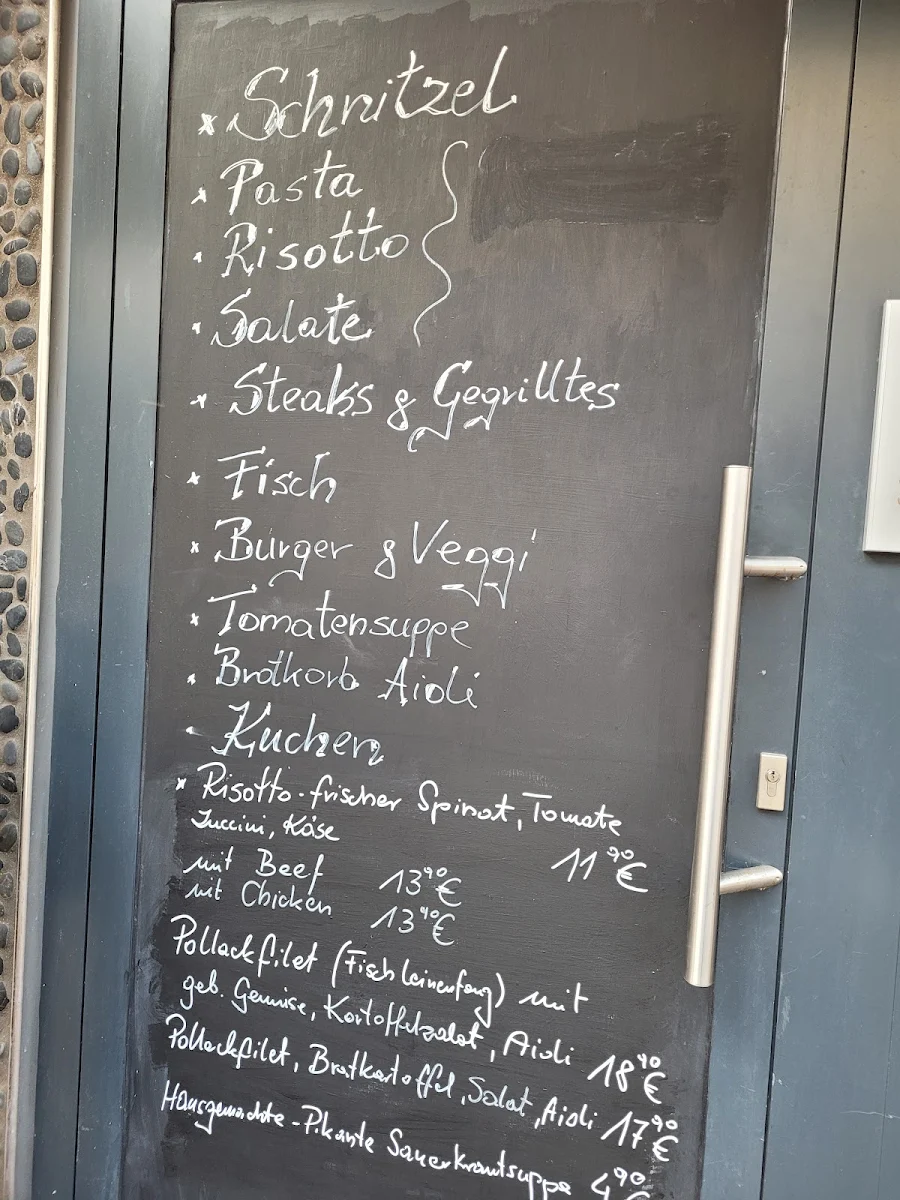 x Schnitzel
x Pasta
x Risotto
x Salate
x Steaks & Gegrilltes
x Fisch
x Burger & Veggi
x Tomatensuppe
x Brotkorb Aioli
- Kuchen
x Risotto - frischer Spinat, Tomate
Zuccini, Käse 11⁹⁰€
mit Beef 13⁹⁰€
mit Chicken 13⁴⁰€
Pollackfilet (Fisch leinenfang) mit
geb. Gemüse, Kartoffelsalat, Aioli 18⁹⁰€
Pollackfilet, Bratkartoffel, Salat, Aioli 17⁹⁰€
Hausgemachte - Pikante Sauerkrautsuppe 4⁹⁰€